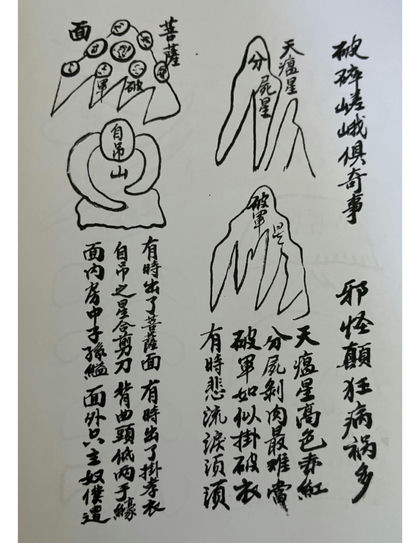 破碎嵯峨俱奇事 邪怪顛狂病祸多
天瘟星
分屍星
破軍星
天瘟星高色赤紅
分屍剝肉最難當
破軍如似掛破衣
有時悲流淚須須
菩薩
面
破
軍
自吊
山
有時出了菩薩面 有時出了掛孝衣
自吊之星合剪刀 背曲頭低两手
面内房中子孫縊 面外只主奴僕遭